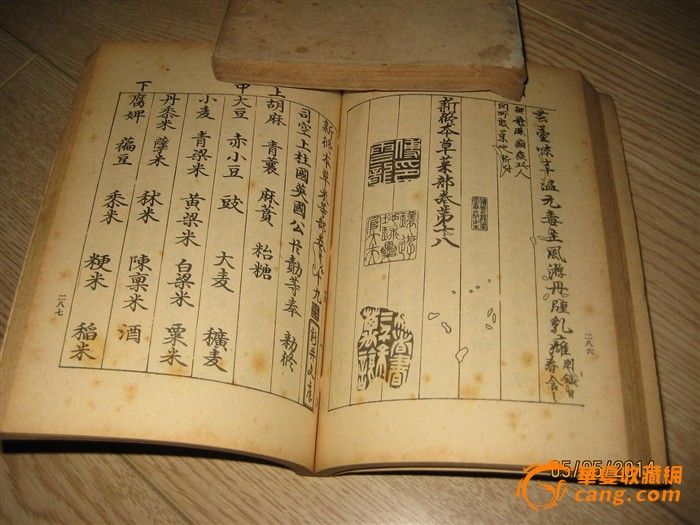 芸薹味辛温无毒主風游丹腫乳癰
新修本草菜部卷第十八
二八六
新修本草米等部卷第十九
司空上柱國英國公臣勣等奉 勅修
上胡麻 青蘘 麻蕡 粘糖
中大豆 赤小豆 豉 大麦 穬麦
小麦 青粱米 黄粱米 白粱米 粟米
丹黍米 糵米 秫米 陳稟米 酒
下腐婢 藊豆 黍米 粳米 稻米
二八七
05/05/2014
華夏收藏網
cang.com